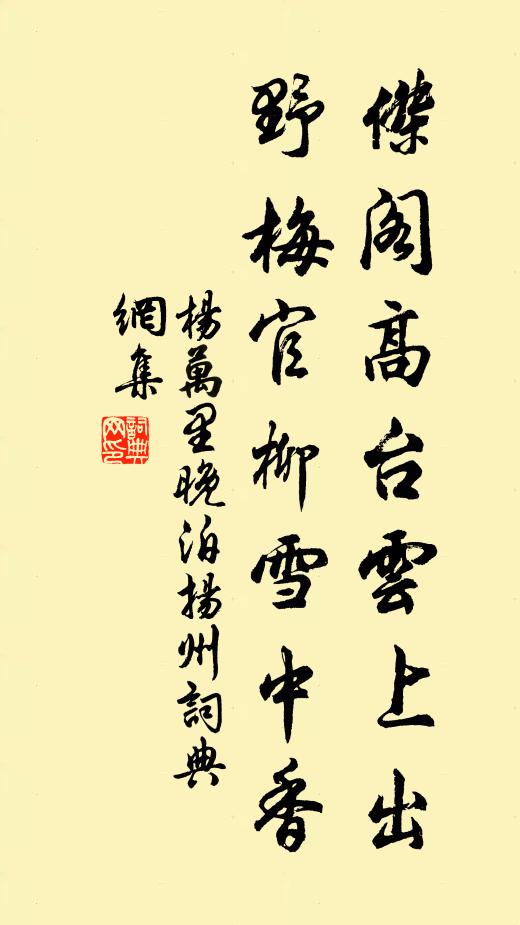 傑阁高台雲上出
野梅官柳雪中香
楊萬里晚泊揚州詞典
網集
詞典
网印